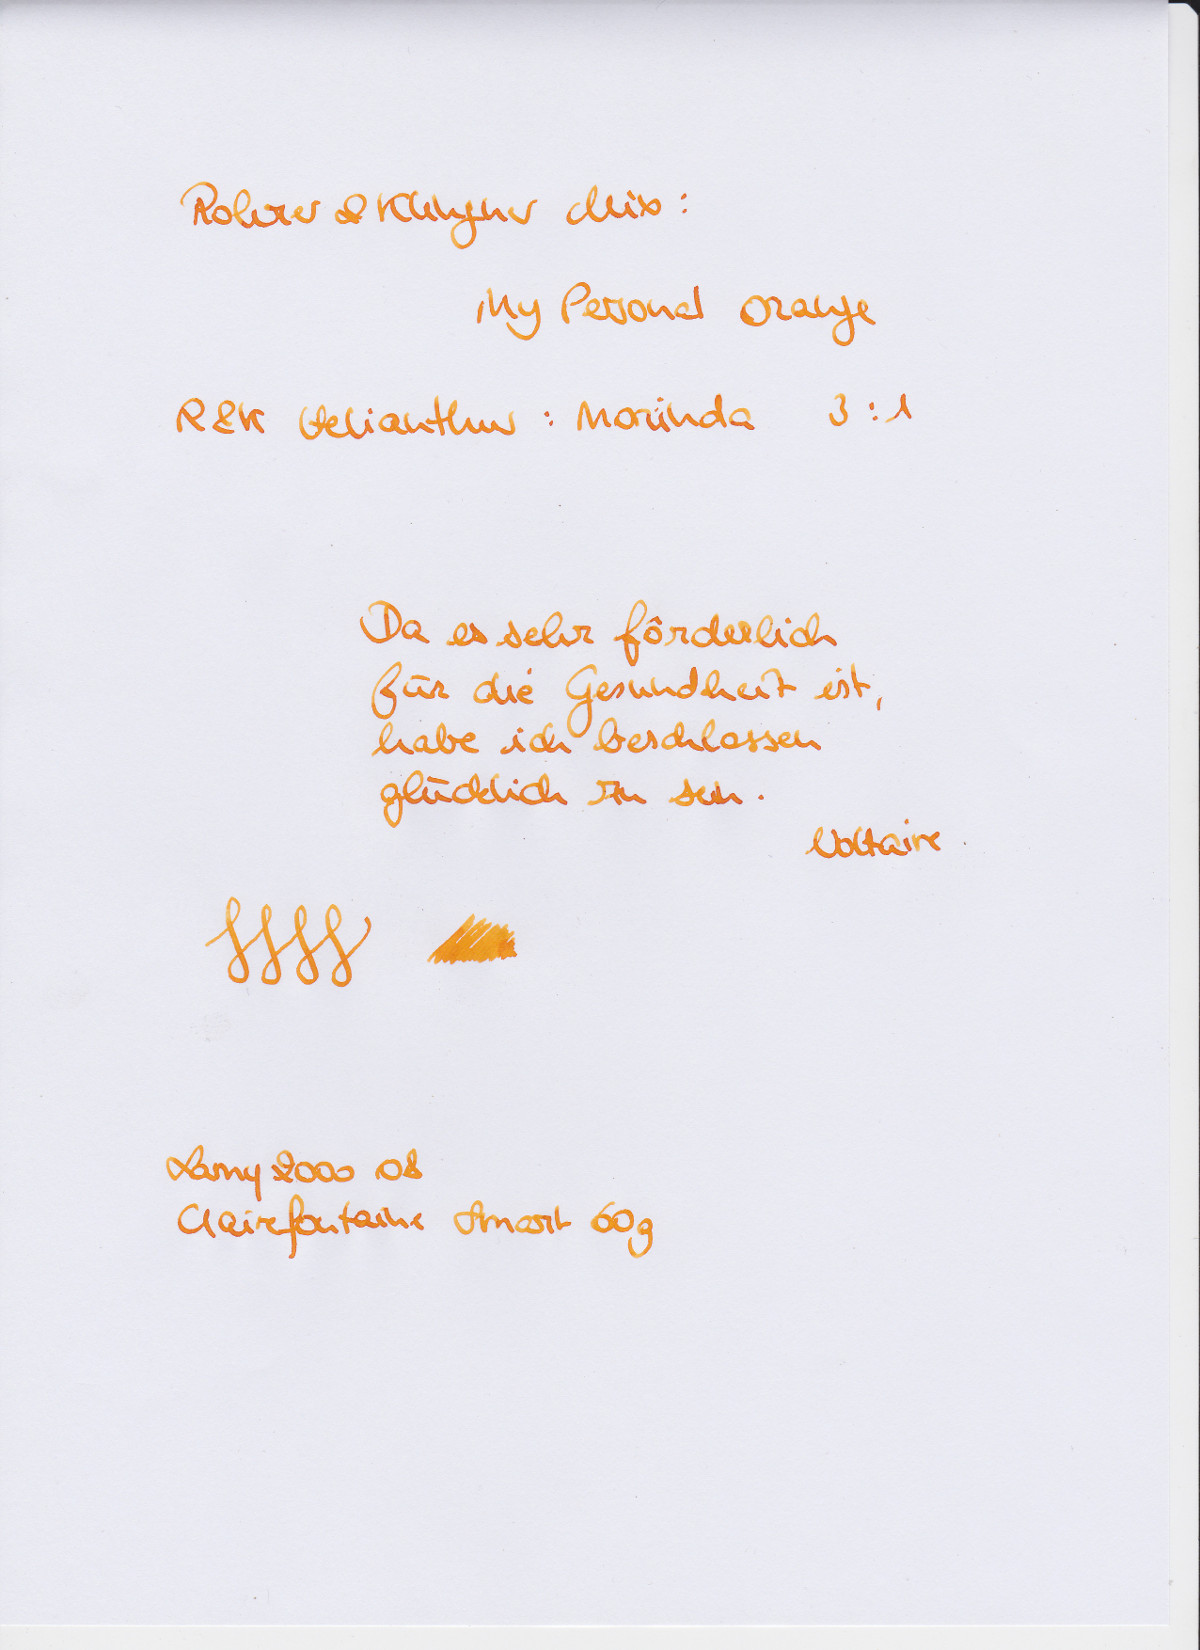 Rohrer & Klingner Mix:
My Personal Orange
R&K Helianthus : Morinda 3:1
Da es sehr förderlich
für die Gesundheit ist,
habe ich beschlossen
glücklich zu sein.
Voltaire
Lamy 2000 OB
Clairefontaine Smart 60g